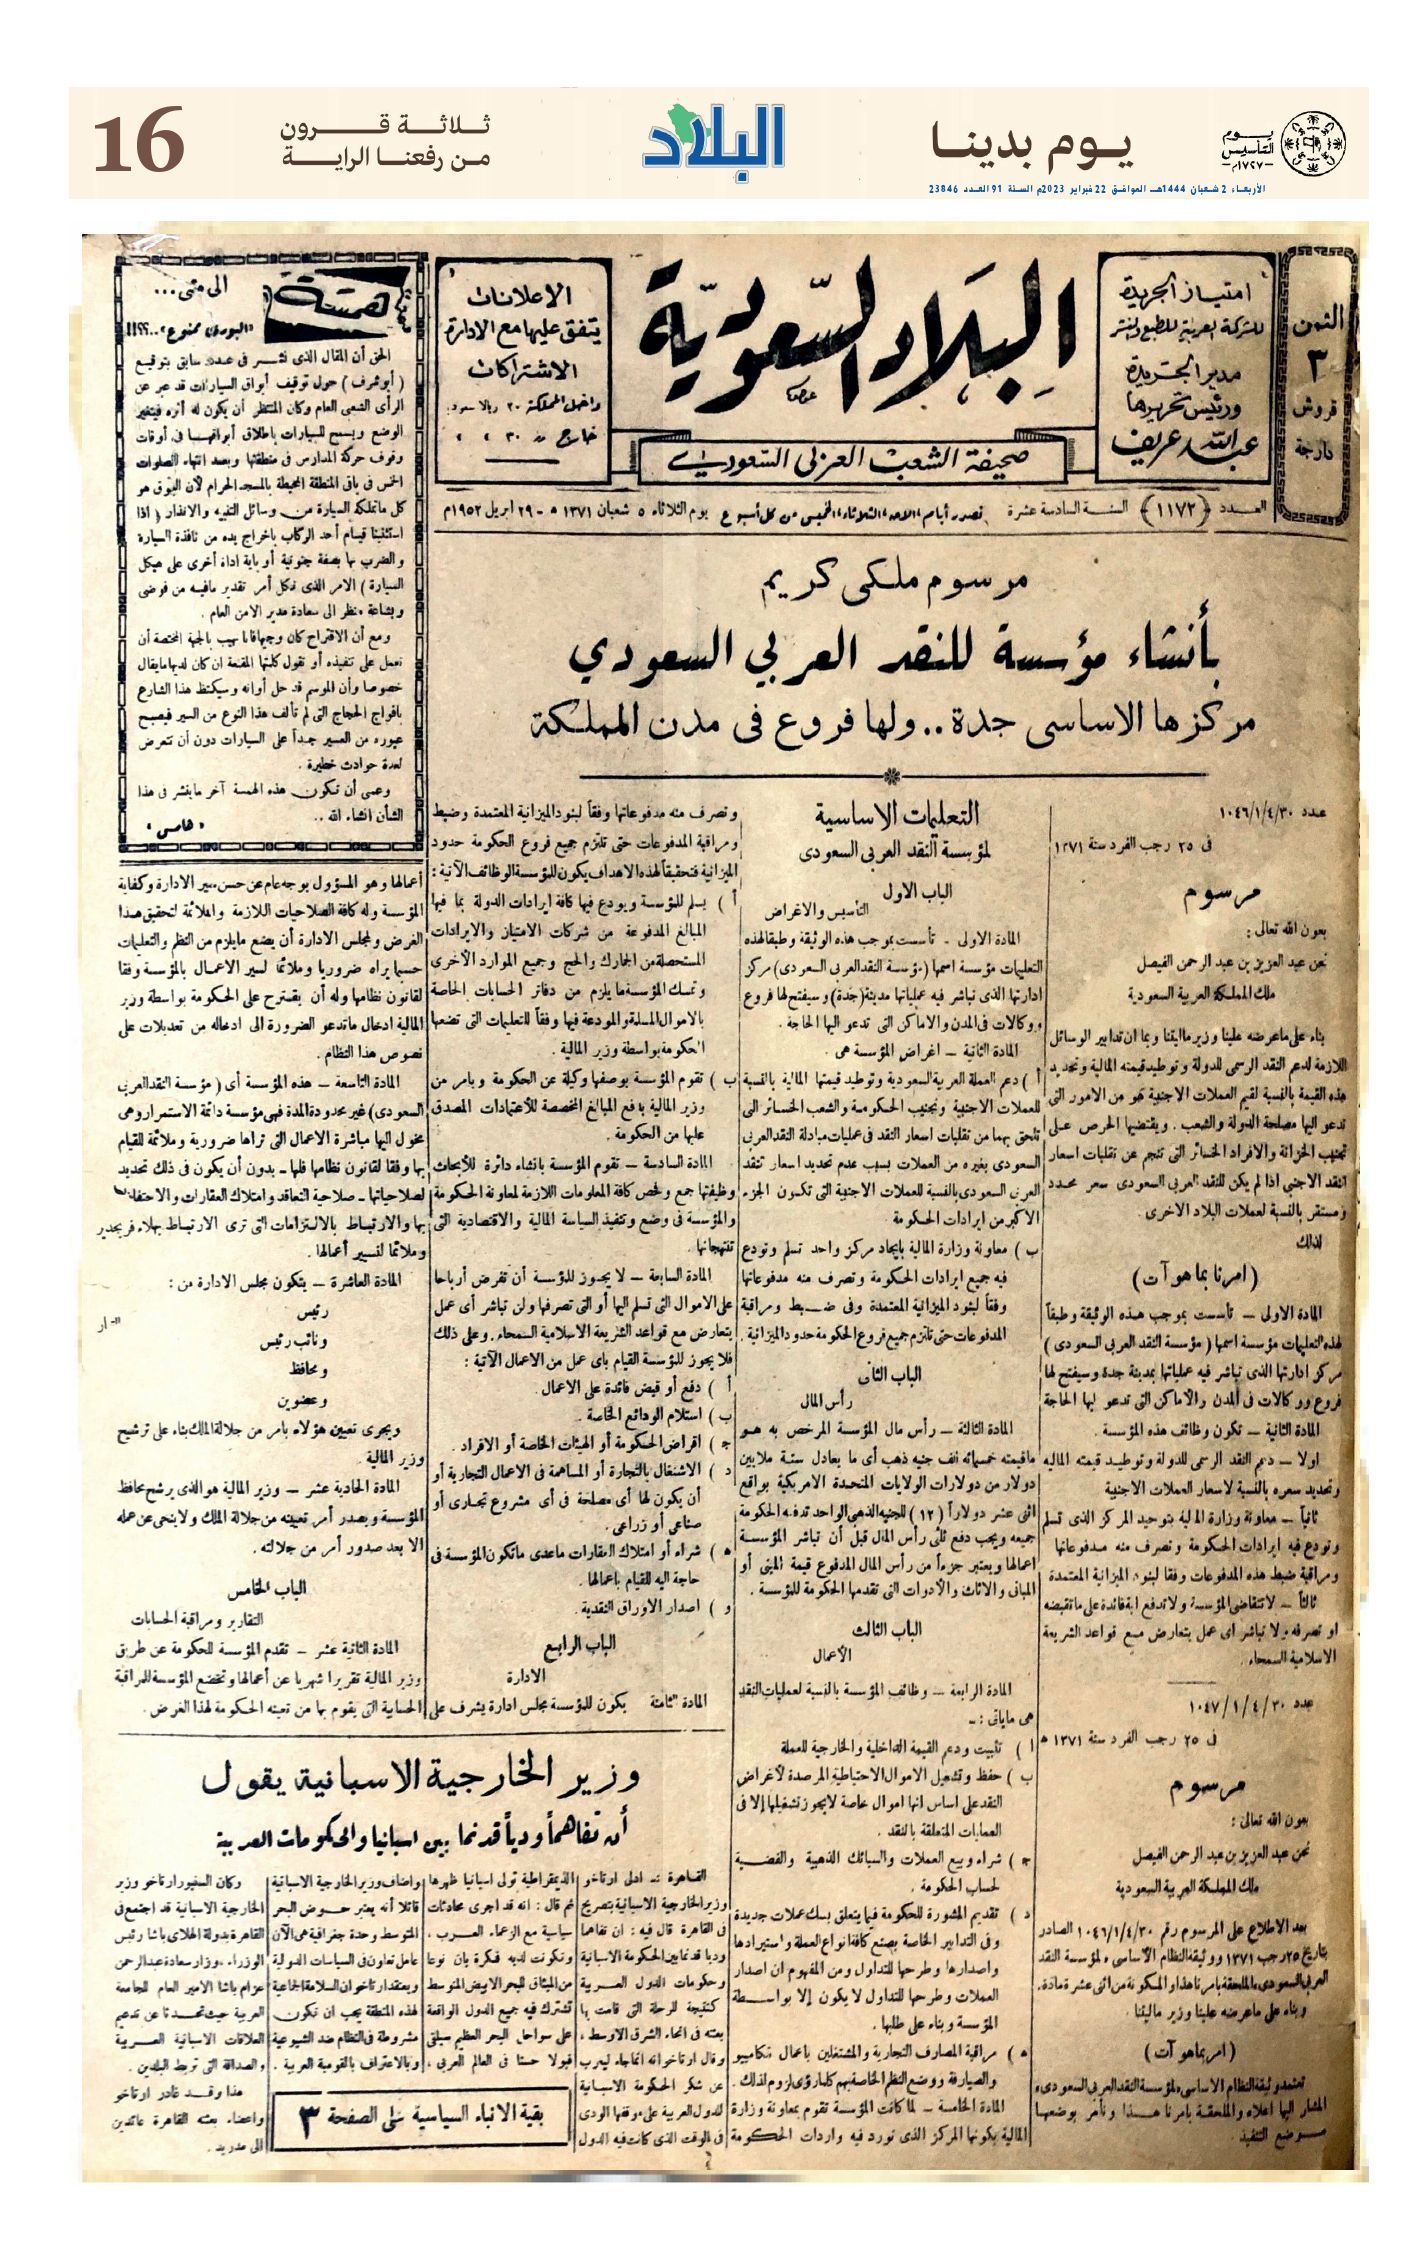 يوم التأسيس
١٧٢٧م
يوم بدينا
الأربعاء 2 شعبان 1444هـ الموافق 22 فبراير 2023م السنة 91 العدد 23846
البلاد
ثلاثة قرون
من رفعنا الراية
16
الثمن
٣
قروش
دارجة
امتياز الجريدة
للشركة العربية للطبع والنشر
مدير الجريدة
ورئيس تحريرها
عبد الله عريف
البلاد السعودية
صحيفة الشعب العربي السعودي
الاعلانات
يتفق عليها مع الادارة
الاشتراكات
داخل المملكة ٢٠ ريالا سعوديا
خارج » ٣٠ » »
العدد (١١٧٢) السنة السادسة عشرة تصدر أيام الاحد، الثلاثاء، الخميس من كل أسبوع يوم الثلاثاء ٥ شعبان ١٣٧١ هـ - ٢٩ ابريل ١٩٥٢م
مرسوم ملكى كريم
بأنشاء مؤسسة للنقد العربي السعودي
مركزها الاساسى جدة.. ولها فروع فى مدن المملكة
عدد ١٠٤٦/١/٤/٣٠
فى ٢٥ رجب الفرد سنة ١٣٧١
مرسوم
بعون الله تعالى :
نحن عبد العزيز بن عبد الرحمن الفيصل
ملك المملكة العربية السعودية
بناء على ماعرضه علينا وزير ماليتنا وبما ان تدابير الوسائل
اللازمة لدعم النقد الرسمى للدولة وتوطيد قيمته المالية وتحديد
هذه القيمة بالنسبة لقيم العملات الاجنبية هو من الامور التى
تدعو اليها مصلحة الدولة والشعب . ويقتضيها الحرص على
تجنيب الخزانة والافراد الخسائر التى تنجم عن تقلبات اسعار
النقد الاجنبى اذا لم يكن للنقد العربى السعودى سعر محدد
ومستقر بالنسبة لعملات البلاد الاخرى .
لذلك
(امرنا بما هو آت)
المادة الاولى – تأسست بموجب هذه الوثيقة وطبقاً
لهذه التعليمات مؤسسة اسمها (مؤسسة النقد العربى السعودى)
مركز ادارتها الذى تباشر فيه عملياتها بمدينة جدة وسيفتح لها
فروع ووكالات فى المدن والاماكن التى تدعو اليها الحاجة
المادة الثانية – تكون وظائف هذه المؤسسة .
اولا – دعم النقد الرسمى للدولة وتوطيد قيمته المالية
وتحديد سعره بالنسبة لاسعار العملات الاجنبية
ثانياً – معاونة وزارة المالية بتوحيد المركز الذى تسلم
وتودع فيه ايرادات الحكومة وتصرف منه مدفوعاتها
ومراقبة ضبط هذه المدفوعات وفقا لبنود الميزانية المعتمدة
ثالثاً – لا تتقاضى المؤسسة ولا تدفع اية فائدة على ما تقبضه
او تصرفه ولا تباشر اى عمل يتعارض مع قواعد الشريعة
الاسلامية السمحاء .
عدد ١٠٤٧/١/٤/٣٠
فى ٢٥ رجب الفرد سنة ١٣٧١ هـ
مرسوم
بعون الله تعالى :
نحن عبد العزيز بن عبد الرحمن الفيصل
ملك المملكة العربية السعودية
بعد الاطلاع على المرسوم رقم ١٠٤٦/١/٤/٣٠ الصادر
بتاريخ ٢٥ رجب ١٣٧١ ووثيقة النظام الأساسى لمؤسسة النقد
العربى السعودى، الملحقة بامرنا هذا والمكونة من اثنى عشرة مادة.
وبناء على ماعرضه علينا وزير ماليتنا .
(امر بما هو آت)
تعتمد وثيقة النظام الاساسى لمؤسسة النقد العربى السعودى،
المشار اليها اعلاه والملحقة بامرنا هذا ونأمر بوضعها
موضع التنفيذ .
التعليمات الاساسية
لمؤسسة النقد العربى السعودى
الباب الاول
التأسيس والاغراض
المادة الاولى – تأسست بموجب هذه الوثيقة وطبقا لهذه
التعليمات مؤسسة اسمها (مؤسسة النقد العربى السعودى) مركز
ادارتها الذى تباشر فيه عملياتها مدينة (جدة) وسيفتح لها فروع
ووكالات فى المدن والاماكن التى تدعو اليها الحاجة .
المادة الثانية – اغراض المؤسسة هى .
أ ) دعم العملة العربية السعودية وتوطيد قيمتها المالية بالنسبة
للعملات الاجنبية وتجنيب الحكومة والشعب الخسائر التى
تلحق بهما من تقلبات اسعار النقد فى عمليات مبادلة النقد العربى
السعودى بغيره من العملات بسبب عدم تحديد اسعار تنقد
العربى السعودى بالنسبة للعملات الاجنبية التى تكون الجزء
الاكبر من ايرادات الحكومة
ب ) معاونة وزارة المالية بايجاد مركز واحد تسلم وتودع
فيه جميع ايرادات الحكومة وتصرف منه مدفوعاتها
وفقاً لبنود الميزانية المعتمدة وفى ضبط ومراقبة
المدفوعات حتى تلتزم جميع فروع الحكومة حدود الميزانية .
الباب الثانى
رأس المال
المادة الثالثة – رأس مال المؤسسة المرخص به هو
ماقيمته خمسمائة الف جنيه ذهب أى ما يعادل ستة ملايين
دولار من دولارات الولايات المتحدة الامريكية بواقع
اثنى عشر دولاراً (١٢) للجنيه الذهبى الواحد تدفعه الحكومة
جميعه ويجب دفع ثلثى رأس المال قبل أن تباشر المؤسسة
اعمالها ويعتبر جزءاً من رأس المال المدفوع قيمة المبنى أو
المبانى والاثاث والأدوات التى تقدمها الحكومة للمؤسسة .
الباب الثالث
الأعمال
المادة الرابعة – وظائف المؤسسة بالنسبة لعمليات النقد
هى ماياتى :–
ا ) تثبيت ودعم القيمة الداخلية والخارجية للعملة
ب ) حفظ وتشغيل الاموال الاحتياطية المرصدة لأغراض
النقد على اساس انها اموال خاصة لايجوز تشغيلها إلا فى
العمليات المتعلقة بالنقد .
ج ) شراء وبيع العملات والسبائك الذهبية والفضية
لحساب الحكومة .
د ) تقديم المشورة للحكومة فيما يتعلق بسك عملات جديدة
وفى التدابير الخاصة بصنع كافة انواع العملة واستيرادها
واصدارها وطرحها للتداول ومن المفهوم ان اصدار
العملات وطرحها للتداول لا يكون إلا بواسطة
المؤسسة وبناء على طلبها .
ه ) مراقبة المصارف التجارية والمشتغلين باعمال
والصيارفة ووضع النظم الخاصة بهم كلما رؤى لزوم لذلك .
المادة الخامسة – لما كانت المؤسسة تقوم بمعاونة وزارة
المالية بكونها المركز الذى تورد فيه واردات الحكومة
وتصرف منه مدفوعاتها وفقاً لبنود الميزانية المعتمدة وضبط
ومراقبة المدفوعات حتى تلتزم جميع فروع الحكومة حدود
الميزانية فتحقيقاً لهذه الاهداف يكون للمؤسسة الوظائف الآتية :
أ ) يسلم للمؤسسة ويودع فيها كافة ايرادات الدولة بما فيها
المبالغ المدفوعة من شركات الامتياز والايرادات
المستحصلة من الجمارك والحج وجميع الموارد الأخرى
وتمسك المؤسسة ما يلزم من دفاتر الحسابات الخاصة
بالاموال المسلمة والمودعة فيها وفقاً للتعليمات التى تضعها
الحكومة بواسطة وزير المالية .
ب ) تقوم المؤسسة بوصفها وكيلة عن الحكومة وبامر من
وزير المالية بافع المبالغ المخصصة للأعتمادات المصدق
عليها من الحكومة .
المادة السادسة – تقوم المؤسسة بانشاء دائرة للأبحاث
وظيفتها جمع وفحص كافة المعلومات اللازمة لمعاونة الحكومة
والمؤسسة فى وضع وتنفيذ السياسة المالية والاقتصادية التى
تنتهجانها .
المادة السابعة – لا يجوز للمؤسسة أن تفرض أرباحا
على الاموال التى تسلم اليها أو التى تصرفها ولن تباشر أى عمل
يتعارض مع قواعد الشريعة الاسلامية السمحاء. وعلى ذلك
فلا يجوز للمؤسسة القيام باى عمل من الاعمال الآتية :
أ ) دفع أو قبض فائدة على الاعمال .
ب ) استلام الودائع الخاصة .
ج ) اقراض الحكومة أو الهيئات الخاصة أو الافراد .
د ) الاشتغال بالتجارة أو المساهمة فى الاعمال التجارية أو
أن يكون لها أى مصلحة فى أى مشروع تجارى أو
صناعى أو زراعى .
ه ) شراء أو امتلاك العقارات ماعدى ماتكون المؤسسة فى
حاجة اليه للقيام باعمالها .
و ) اصدار الأوراق النقدية .
الباب الرابع
الادارة
المادة الثامنة يكون للمؤسسة مجلس ادارة يشرف على
همسة
الى متى...
«البورى ممنوع»..؟؟!!
الحق أن المقال الذى نشر فى عدد سابق بتوقيع
(أبو شرف) حول توقيف أبواق السيارات قد عبر عن
الرأى الشعبى العام وكان المنتظر أن يكون له أثره فيتغير
الوضع ويسمح للسيارات باطلاق أبواقها فى أوقات
وقوف حركة المدارس فى منطقتها وبعد انتهاء الصلوات
الخمس فى باقى المنطقة المحيطة بالمسجد الحرام لأن البوق هو
كل ماتملكه السيارة من وسائل التنبيه والانذار (اذا
استثنينا قيام أحد الركاب باخراج يده من نافذة السيارة
والضرب بها بصفة جنونية أو باية اداة أخرى على هيكل
السيارة) الامر الذى نكل أمر تقدير مافيه من فوضى
وبشاعة منظر الى سعادة مدير الامن العام .
ومع أن الاقتراح كان وجيها فانا نهيب بالجهة المختصة أن
تعمل على تنفيذه أو تقول كلمتها المقنعة ان كان لديها مايقال
خصوصا وأن الموسم قد حل أوانه وسيكتظ هذا الشارع
بافواج الحجاج التى لم تألف هذا النوع من السير فيصبح
عبوره من العسير جداً على السيارات دون أن تتعرض
لعدة حوادث خطيرة .
وعسى أن تكون هذه الهمسة آخر ماينشر فى هذا
الشأن انشاء الله ..
«هامس»
أعمالها وهو المسؤول بوجه عام عن حسن سير الادارة وكفاية
المؤسسة وله كافة الصلاحيات اللازمة والملائمة لتحقيق هذا
الغرض ولمجلس الادارة أن يضع مايلزم من النظم والتعليمات
حسبما يراه ضروريا وملائما لسير الاعمال بالمؤسسة وفقا
لقانون نظامها وله أن يقترح على الحكومة بواسطة وزير
المالية ادخال ماتدعو الضرورة الى ادخاله من تعديلات على
نصوص هذا النظام .
المادة التاسعة – هذه المؤسسة أى (مؤسسة النقد العربى
السعودى) غير محدودة المدة فهى مؤسسة دائمة الاستمرار وهى
مخول اليها مباشرة الاعمال التى تراها ضرورية وملائمة للقيام
بها وفقا لقانون نظامها فلها – بدون أن يكون فى ذلك تحديد
لصلاحياتها – صلاحية التعاقد وامتلاك العقارات والاحتفاظ
بها والارتباط بالالتزامات التى ترى الارتباط بها
وملائما لتسيير أعمالها .
المادة العاشرة – يتكون مجلس الادارة من :
رئيس
ونائب رئيس
ومحافظ
وعضوين
ويجرى تعيين هؤلاء بامر من جلالة الملك بناء على ترشيح
وزير المالية .
المادة الحادية عشر – وزير المالية هو الذى يرشح محافظ
المؤسسة ويصدر أمر تعيينه من جلالة الملك ولا ينحى عن عمله
الا بعد صدور أمر من جلالته .
الباب الخامس
التقارير ومراقبة الحسابات
المادة الثانية عشر – تقدم المؤسسة للحكومة عن طريق
وزير المالية تقريرا شهريا عن أعمالها وتخضع المؤسسة للمراقبة
الحسابية التى يقوم بها من تعينه الحكومة لهذا الغرض .
وزير الخارجية الاسبانية يقول
أن تفاهماً ودياً قد نما بين اسبانيا والحكومات العربية
القاهرة – ادلى ارتاخو
وزير الخارجية الاسبانية بتصريح
فى القاهرة قال فيه : ان تفاهما
وديا قد نما بين الحكومة الاسبانية
وحكومات الدول العربية
كنتيجة للرحلة التى قامت بها
بعثته فى انحاء الشرق الاوسط ،
وقال ارتاخو انه انما جاء ليعرب
عن شكر الحكومة الاسبانية
للدول العربية على موقفها الودى
فى الوقت الذى كانت فيه الدول
الديمقراطية تولى اسبانيا ظهرها
ثم قال : انه قد اجرى محادثات
سياسية مع الزعماء العرب .
وتكونت لديه فكرة بان نوعا
من الميثاق للبحر الابيض المتوسط
تشترك فيه جميع الدول الواقعة
على سواحل البحر العظيم سيلقى
قبولا حسنا فى العالم العربى ،
واضاف وزير الخارجية الاسبانية
قائلا أنه يعتبر حوض البحر
المتوسط وحدة جغرافية هى الآن
عامل تعاون فى السياسات الدولية
ويعتقد ارتاخو ان السلامة الجماعية
لهذه المنطقة يجب ان تكون
مشروطة فى النظام ضد الشيوعية
وبالاعتراف بالقومية العربية .
وكان السنيور ارتاخو وزير
الخارجية الاسبانية قد اجتمع فى
القاهرة بدولة الهلالى باشا رئيس
الوزراء، وزار سعادة عبد الرحمن
عزام باشا الامين العام للجامعة
العربية حيث تحدثا عن تدعيم
العلاقات الاسبانية العربية
والصداقة التى تربط البلدين .
هذا وقد غادر ارتاخو
واعضاء بعثته القاهرة عائدين
الى مدريد .
بقية الانباء السياسية على الصفحة ٣